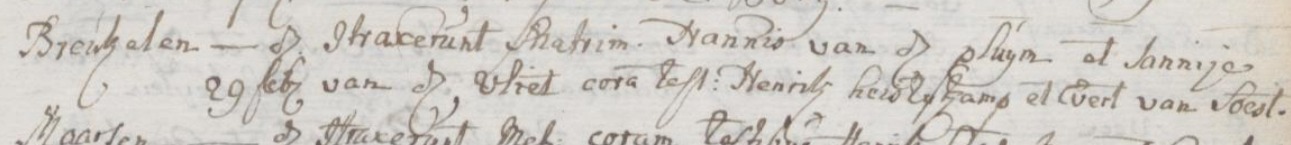 Breukelen — d. Ctraxerunt Matrim. Nannis van d. pluym et Jannije
29 feb van d. Vliet corā test: Henrik et Evert van Soest.
Maarsen d Ctraxerunt Mat: coram testibus Henrik